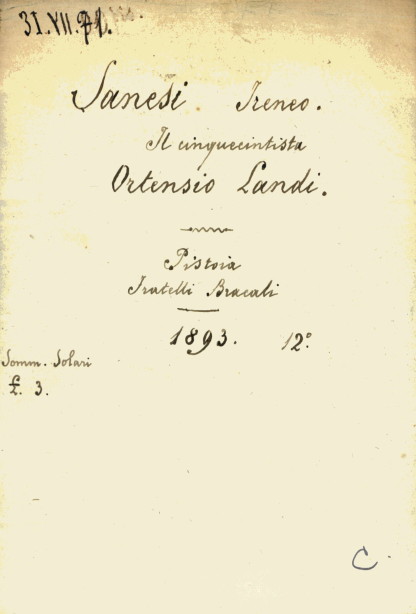 31.VII.
Sanesi. Ireneo.
Il cinquecintista
Ortensio Landi.
Pistoia
Fratelli Bracali
1893. 12º
Somm. Solari
£. 3.
C.